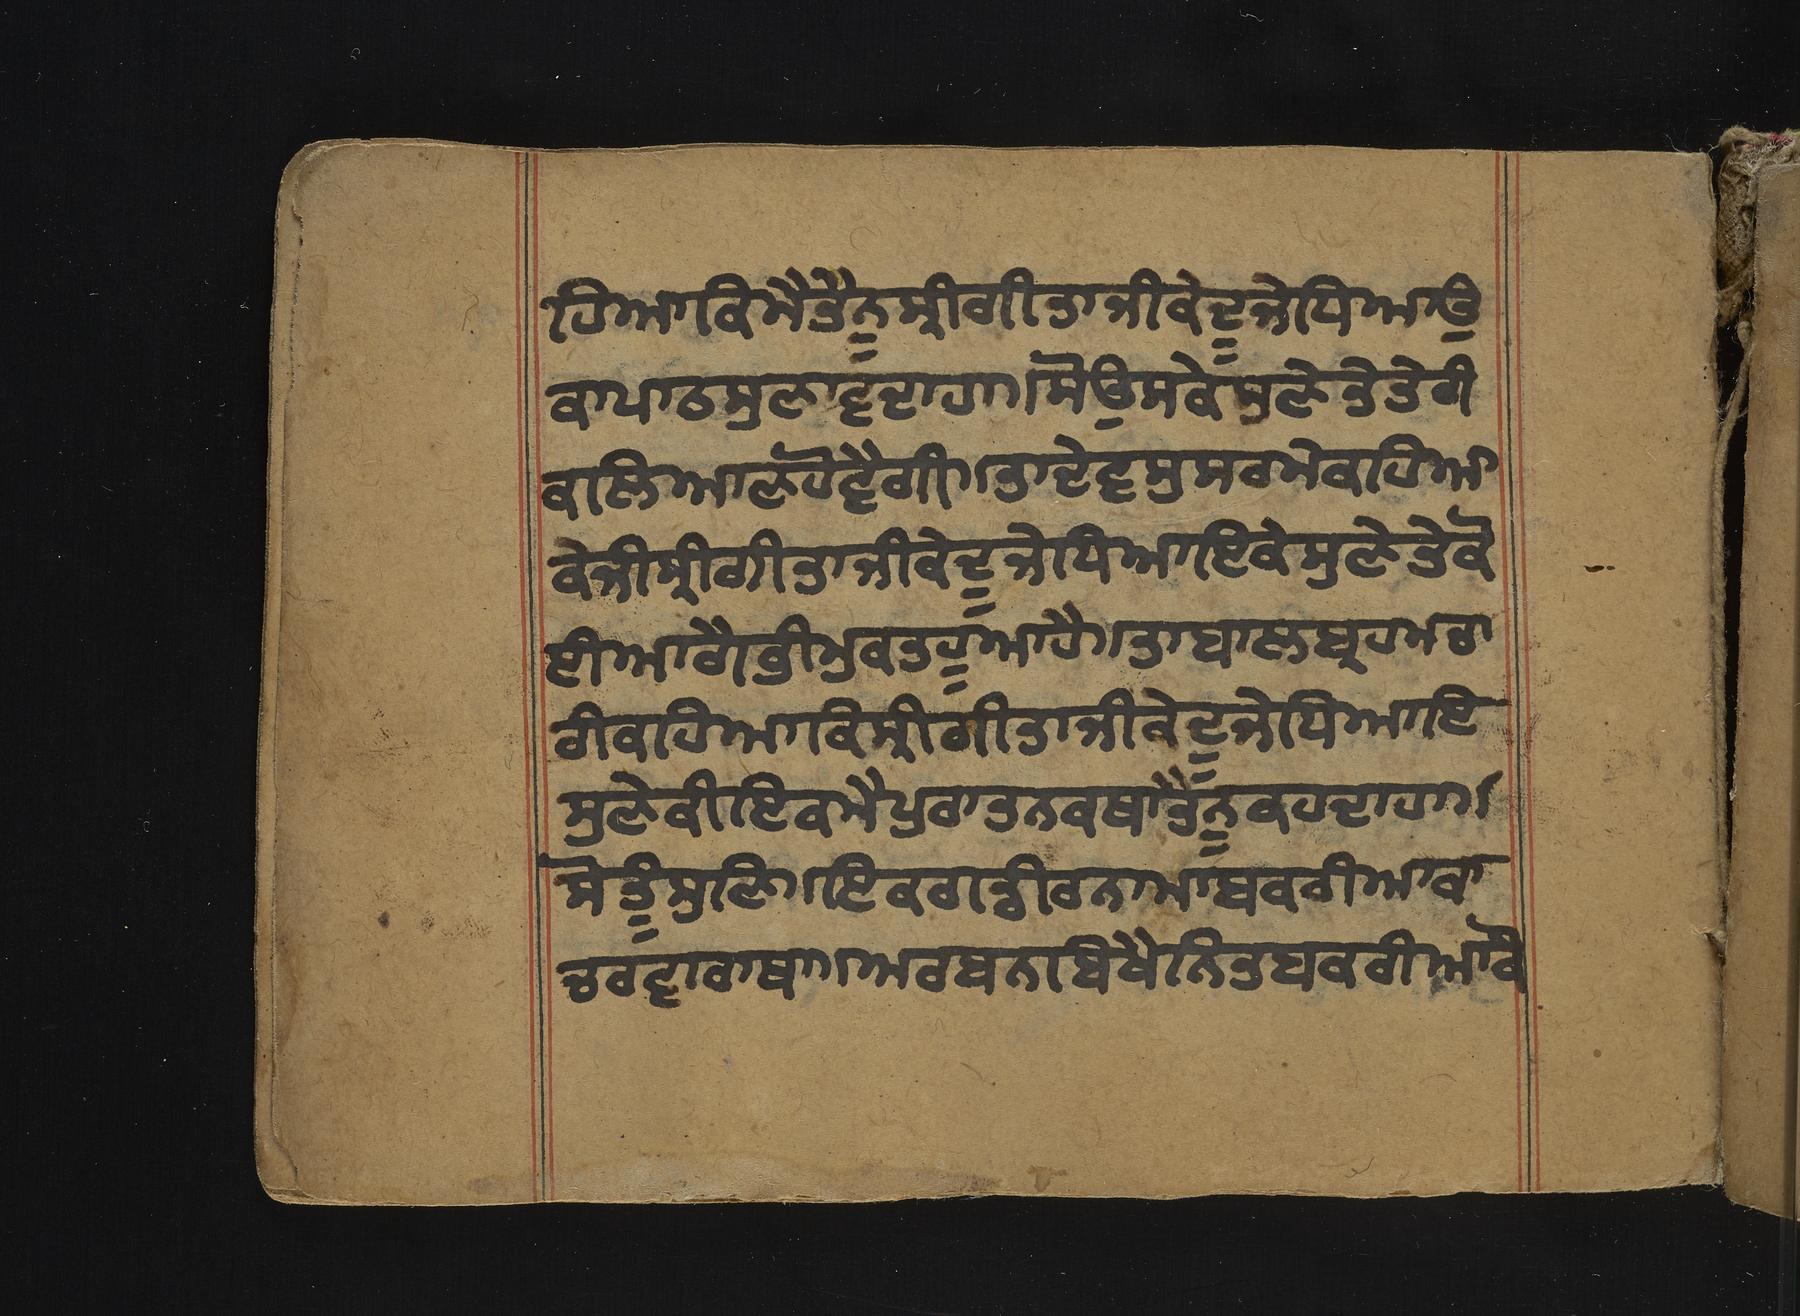 ਹਿਆਕਿਮੈਤੈਨੂਸ੍ਰੀਗੀਤਾਜੀਕੇਦੂਜੇਧਿਆਉ
ਕਾਪਾਠਸੁਣਾਵਦਾਹਾ॥ਸੋਉਸਕੇਸੁਣੇਤੇਤੇਰੀ
ਕਲਿਆਣਹੋਵੈਗੀ॥ਤਾਦੇਵਸੁਸਰਮੇਕਹਿਆ
ਕੇਜੀਸ੍ਰੀਗੀਤਾਜੀਕੇਦੂਜੇਧਿਆਇਕੇਸੁਣੇਤੇਕੋ
ਈਆਗੈਭੀਮੁਕਤਹੂਆਹੈ॥ਤਾਬਾਲਬ੍ਰਹਮਚਾ
ਰੀਕਹਿਆਕਿਸ੍ਰੀਗੀਤਾਜੀਕੇਦੂਜੇਧਿਆਇ
ਸੁਣੇਕੀਇਕਮੈਪੁਰਾਤਨਕਥਾਤੈਨੂਕਹਦਾਹਾ॥
ਸੋਤੂੰਸੁਣਿ॥ਇਕਗਡੀਰਨਾਮਾਬਕਰੀਆਕਾ
ਚਰਵਾਰਾਥਾ॥ਅਰਬਨਬਿਖੈਨਿਤਬਕਰੀਆਕੋ